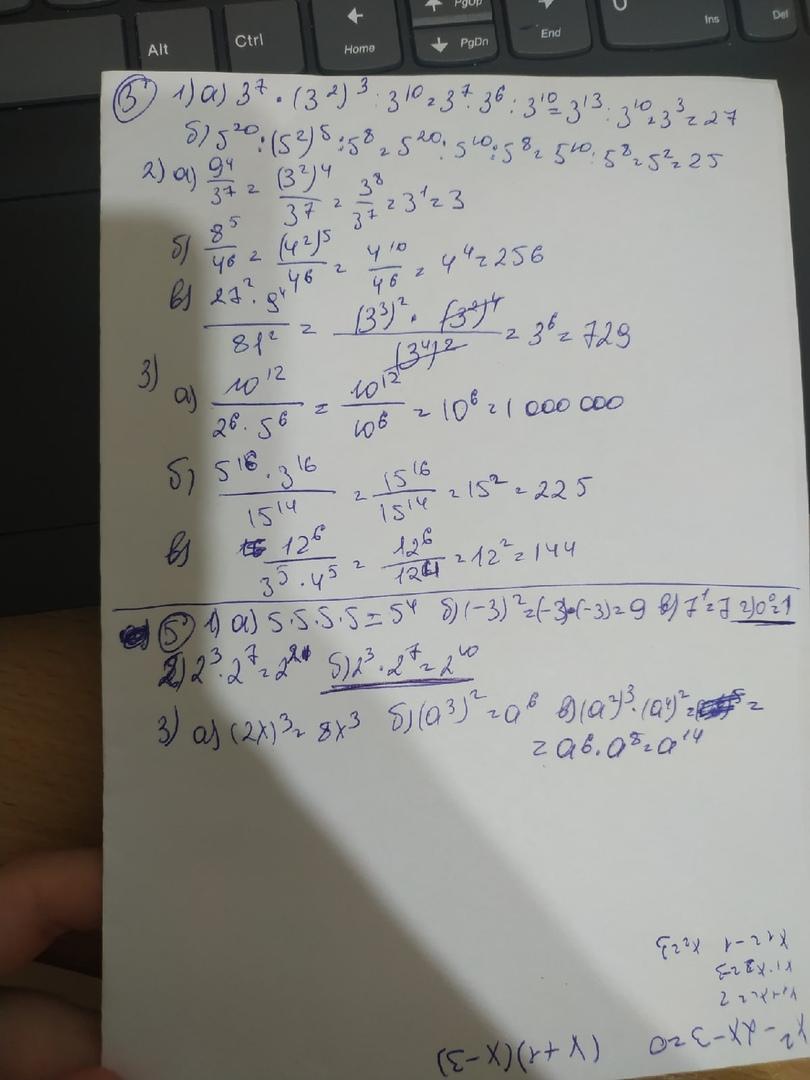 Alt
Ctrl
←
Home
↑ PgUp
↓ PgDn
End
Ins
Del
3° 1) а) 3⁷ · (3²)³ : 3¹⁰ = 3⁷ · 3⁶ : 3¹⁰ = 3¹³ : 3¹⁰ = 3³ = 27
б) 5²⁰ : (5²)⁵ : 5⁸ = 5²⁰ : 5¹⁰ : 5⁸ = 5¹⁰ : 5⁸ = 5² = 25
2) а) 9⁴/3⁷ = (3²)⁴/3⁷ = 3⁸/3⁷ = 3¹ = 3
б) 8⁵/4⁶ = (4²)⁵/4⁶ = 4¹⁰/4⁶ = 4⁴ = 256
в) 27² · 9⁴/81² = (3³)² · (3²)⁴/(3⁴)² = 3⁶ = 729
3) а) 10¹²/2⁶ · 5⁶ = 10¹²/10⁶ = 10⁶ = 1 000 000
б) 5¹⁶ · 3¹⁶/15¹⁴ = 15¹⁶/15¹⁴ = 15² = 225
в) 12⁶/3⁵ · 4⁵ = 12⁶/12⁴ = 12² = 144
5° 1) а) 5 · 5 · 5 · 5 = 5⁴ б) (-3)² = (-3) · (-3) = 9 в) 7¹ = 7 г) 0° = 1
2) 2³ · 2⁷ = 2²¹ б) 2³ · 2⁷ = 2¹⁰
3) а) (2x)³ = 8x³ б) (a³)² = a⁶ в) (a²)³ · (a⁴)² = =
= a⁶ · a⁸ = a¹⁴
x² - 2x - 3 = 0 (x + 1)(x - 3)
x₁ + x₂ = 2
x₁ · x₂ = -3
x₁ = -1 x₂ = 3